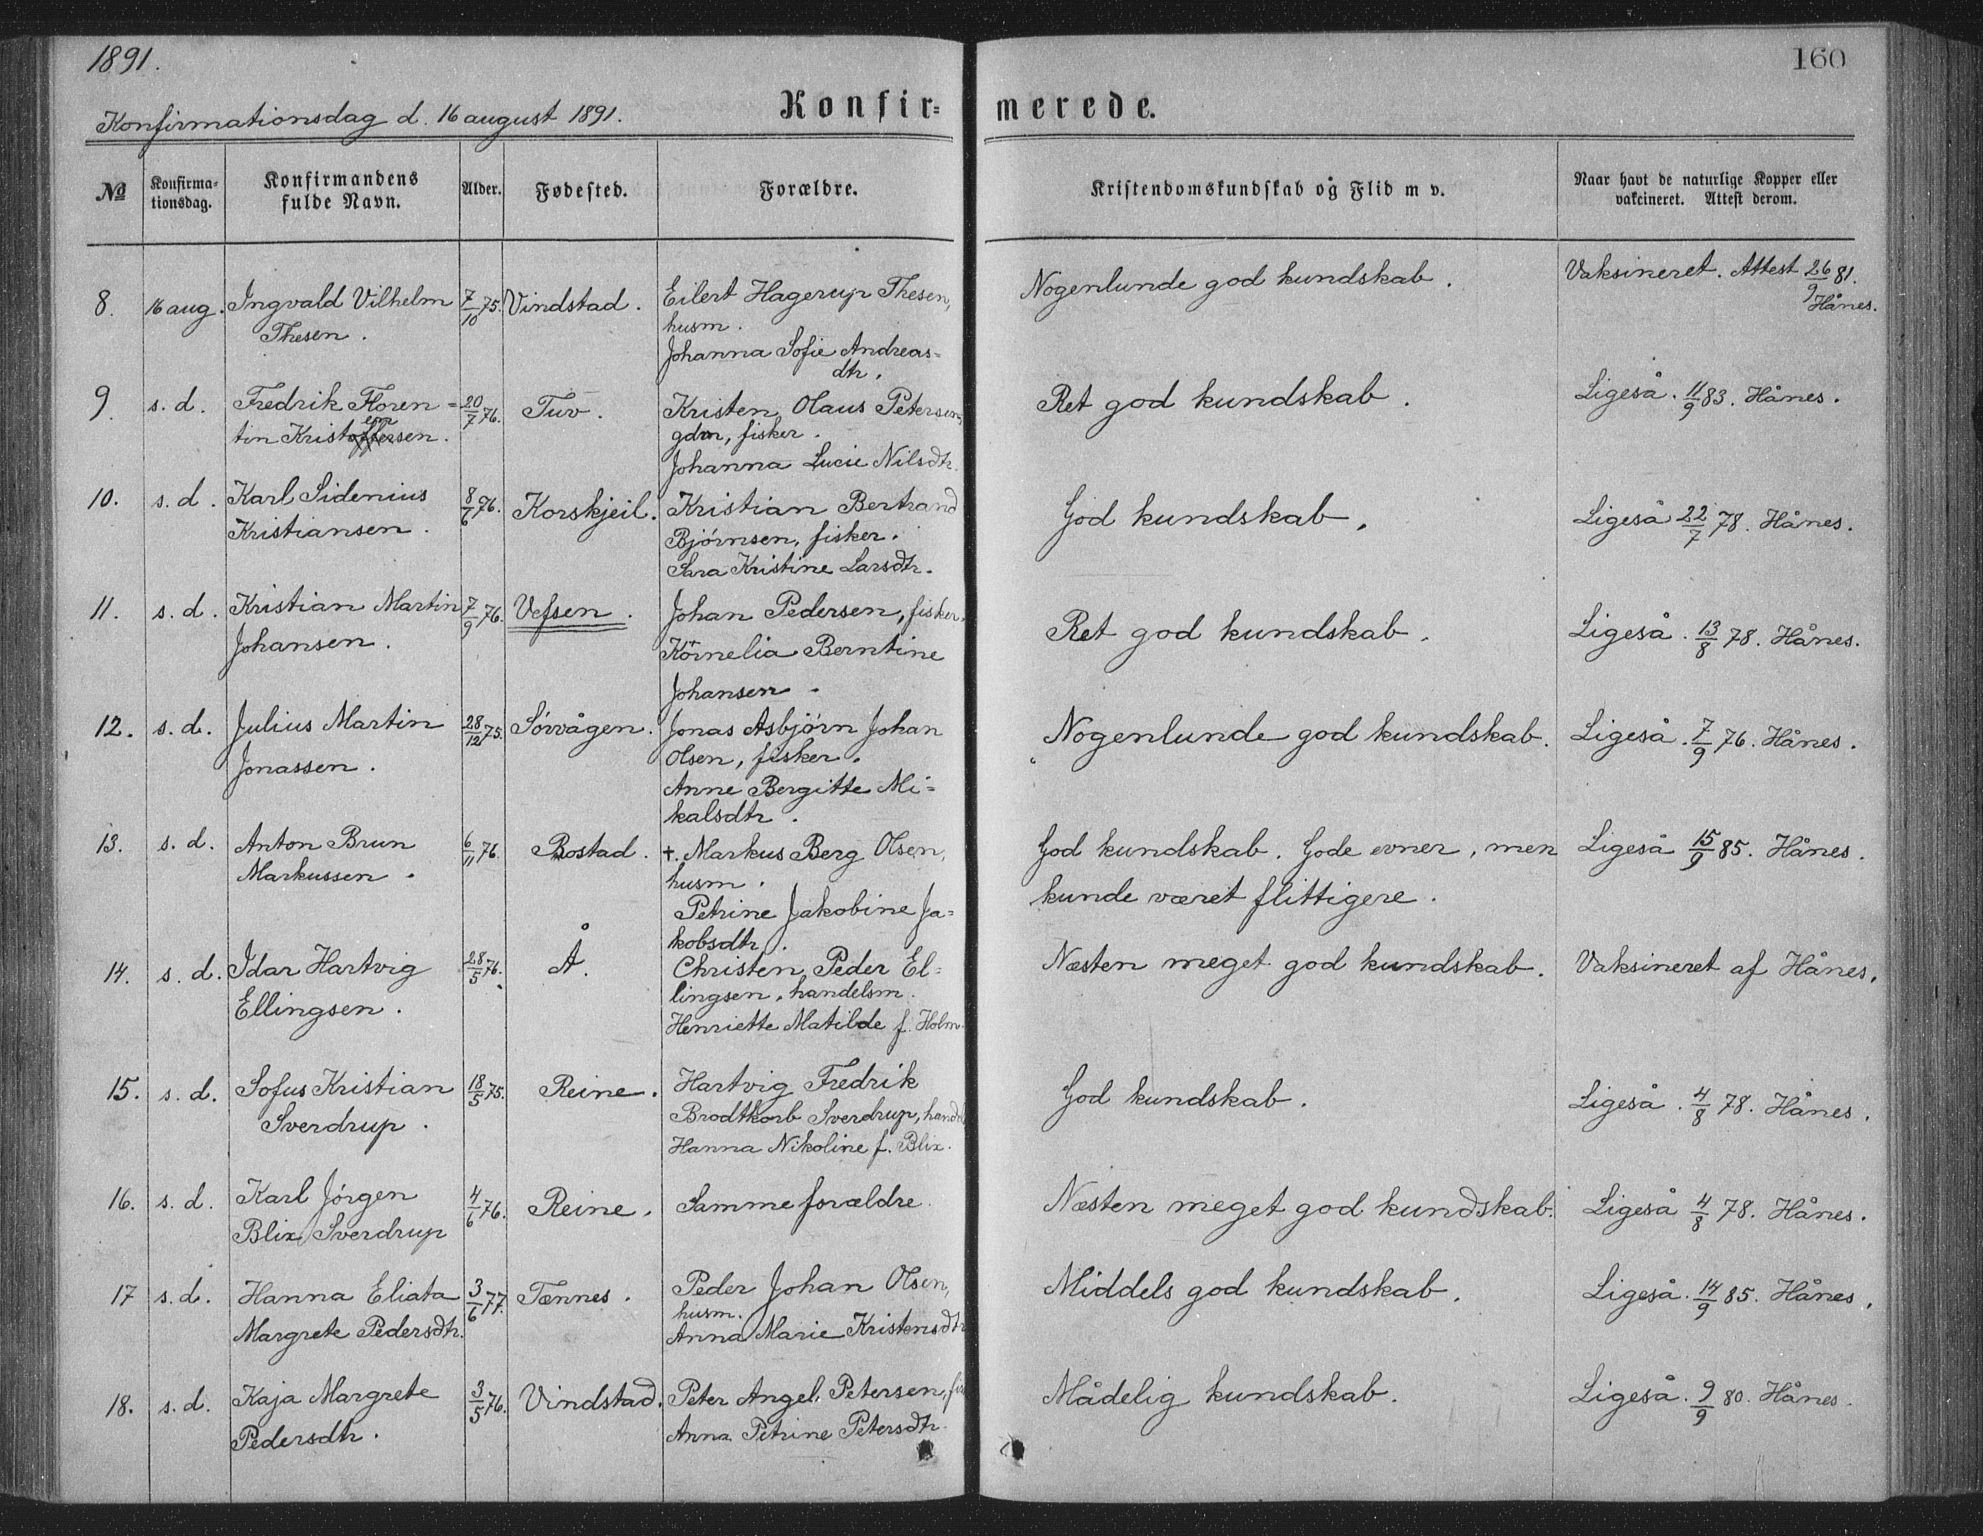 1891.
160
Konfirmationsdag d. 16 august 1891.
Konfir= merede.
№
Konfirma-
tionsdag.
Konfirmandens
fulde Navn.
Alder.
Fødested.
Forældre.
Kristendomskundskab og Flid m v.
Naar havt de naturlige Kopper eller
vakcineret. Attest derom.
8. 16 aug. Ingvald Vilhelm 7/10 75. Vindstad. Eilert Hagerup Thesen, Nogenlunde god kundskab. Vaksineret. Attest 26/9 81.
Thesen. husm. Hånes.
Johanna Sofie Andreas=
dtr.
9. s. d. Fredrik Floren= 20/7 76. Tuv. Kristen Olaus Petersen, Ret god kundskab. Ligeså. 11/9 83. Hånes.
tin Kristoffersen. gdm, fisker.
Johanna Lucie Nilsdtr.
10. s. d. Karl Sidenius 8/6 76. Korskjeil. Kristian Bertrand God kundskab. Ligeså 22/7 78. Hånes.
Kristiansen. Bjørnsen, fisker.
Sara Kristine Larsdtr.
11. s. d. Kristian Martin 7/9 76. Vefsen. Johan Pedersen, fisker. Ret god kundskab. Ligeså. 13/8 78. Hånes.
Johansen. Kornelia Berntine
Johansen.
12. s. d. Julius Martin 28/12 75. Sörvågen. Jonas Asbjörn Johan Nogenlunde god kundskab. Ligeså. 7/9 76. Hånes.
Jonassen. Olsen, fisker.
Anne Bergitte Mi=
kalsdtr.
13. s. d. Anton Brun 6/11 76. Bostad. +. Markus Berg Olsen, God kundskab. Gode evner, men Ligeså 15/9 85. Hånes.
Markussen. husm. kunde været flittigere.
Petrine Jakobine Ja=
kobsdtr.
14. s. d. Idar Hartvig 28/5 76. Å. Christen Peder El= Næsten meget god kundskab. Vaksineret af Hånes.
Ellingsen. lingsen, handelsm.
Henriette Matilde f. Holm
15. s. d. Sofus Kristian 18/5 75. Reine. Hartvig Fredrik God kundskab. Ligeså. 4/8 78. Hånes.
Sverdrup. Brodtkorb Sverdrup,
Hanna Nikoline f. Blix.
16. s. d. Karl Jörgen 4/6 76. Reine. Samme forældre Næsten meget god kundskab. Ligeså 4/8 78. Hånes.
Blix Sverdrup
17 s. d. Hanna Eliata 3/6 77. Tennes. Peder Johan Olsen, Middels god kundskab. Ligeså. 14/9 85. Hånes.
Margrete Pedersdtr. husm.
Anna Marie Kristensdtr
18. s. d. Kaja Margrete 3/5 76. Vindstad. Peter Angel Petersen, Mådelig kundskab. Ligeså. 9/9 80. Hånes.
Pedersdtr. Anna Petrine Petersdtr.